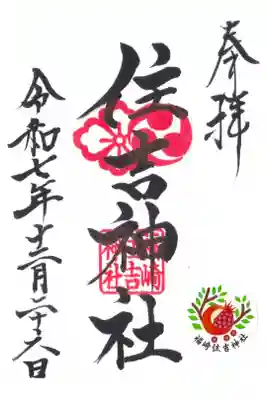 奉拝
住吉神社
令和七年十二月二十六日
福崎住吉神社